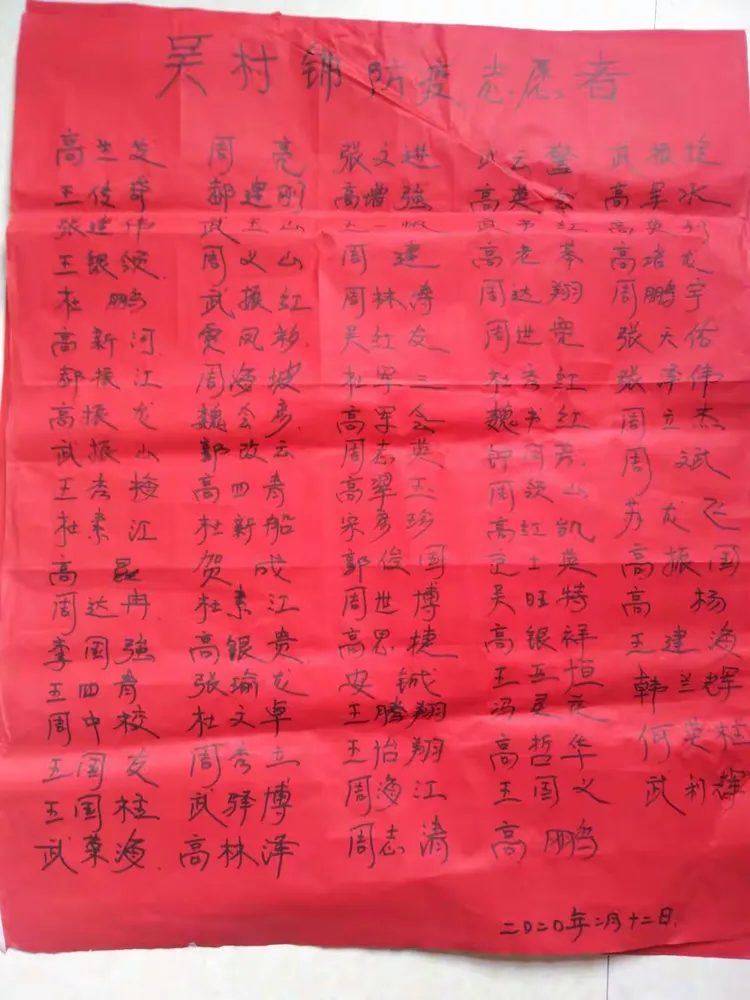 吴村铺防疫志愿者
高兰芝 周亮 张文进 武云鳌 武振堂
王俊奇 郝建刚 高增强 高英会 高军水
张建伟 武玉山
王银领 周义山 周建 高老莘 高培龙
杜鹏 武振红 周林涛 周达翔 周鹏宇
高新河 贾凤彩 吴红友 周世宽 张天佑
郝振江 周海坡 杜军三 杜秀红 张泽伟
高振龙 魏会彦 高军会 魏书红 周立杰
武振山 郭改云 周志英 钟同芳 周斌
王秀梅 高四青 高翠玉 周领山 苏龙飞
杜素江 杜新船 宋彦珍 高红凯
高磊 贺成 郭俊国 士英 高振国
周达冉 杜素江 周世博 吴旺特 高杨
李国强 高银贵 高思捷 高银祥 王建海
王四青 张瑜龙 安铖 王五恒 韩兰辉
周中校 杜文卓 王腾翔 冯更
王国友 周秀立 王怡翔 高哲华 何英桂
王国柱 武驿博 周海江 王国义 武利群
武荣海 高林泽 周志涛 高鹏
二〇二〇年二月十二日